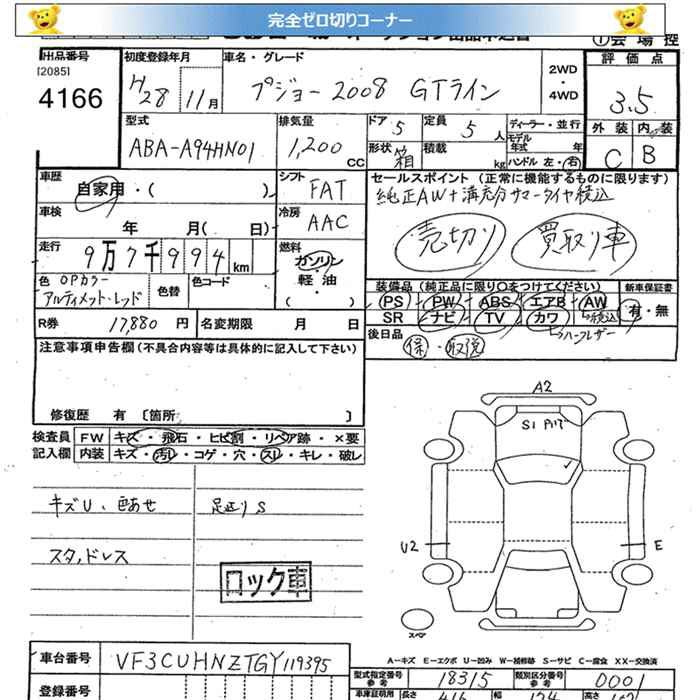 完全ゼロ切りコーナー
出品番号 初度登録年月 車名・グレード 2WD・4WD 評価点
[2085]
4166 H28 11月 プジョー2008 GTライン 3.5
型式 排気量 ドア 5 定員 5人 ディーラー・並行 外装 内装
ABA-A94HN01 1,200cc 形状 箱 積載 kg モデル年式 年 ハンドル 左・右 C B
車歴 自家用・( ) シフト FAT セールスポイント (正常に機能するものに限ります)
純正AW+溝充分サマータイヤ積込
車検 年 月( 日) 冷房 AAC 売切り 買取り車
走行 9万7千994km 燃料 ガソリン・軽油 ( )
色 OPカラー アルティメット・レッド 色替 色コード
装備品 (純正品に限り○をつけてください) 新車保証書
PS PW ABS エアB AW 有・無
SR ナビ TV カワ 積込
ハーフレザー
R券 17,880円 名変期限 月 日 後日品 保・取説
注意事項申告欄 (不具合内容等は具体的に記入して下さい)
修復歴 有 [箇所 ]
検査員 FW キズ・飛石・ヒビ割・リペア跡・×要
記入欄 内装 キズ・汚レ・コゲ・穴・スレ・キレ・破レ
キズU、色あせ 足廻りS
スタッドレス
ロック車
A2
S1
U2 E
スペア
A−キズ E−エクボ U−凹み W−補修跡 S−サビ C−腐食 XX−交換済
車台番号 VF3CUHNZTGY119395
型式指定番号 参考 18315 類別区分番号 参考 0001
登録番号 車庫証明用 長さ 幅 高さ